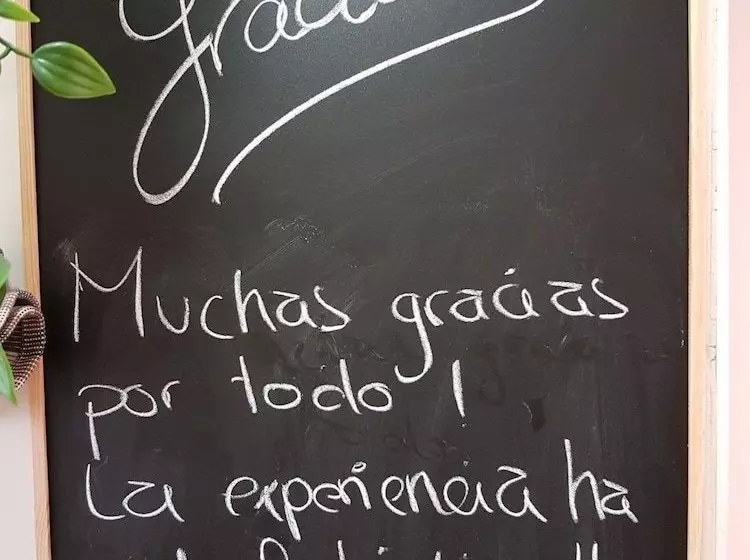 Muchas gracias
por todo !
La experiencia ha